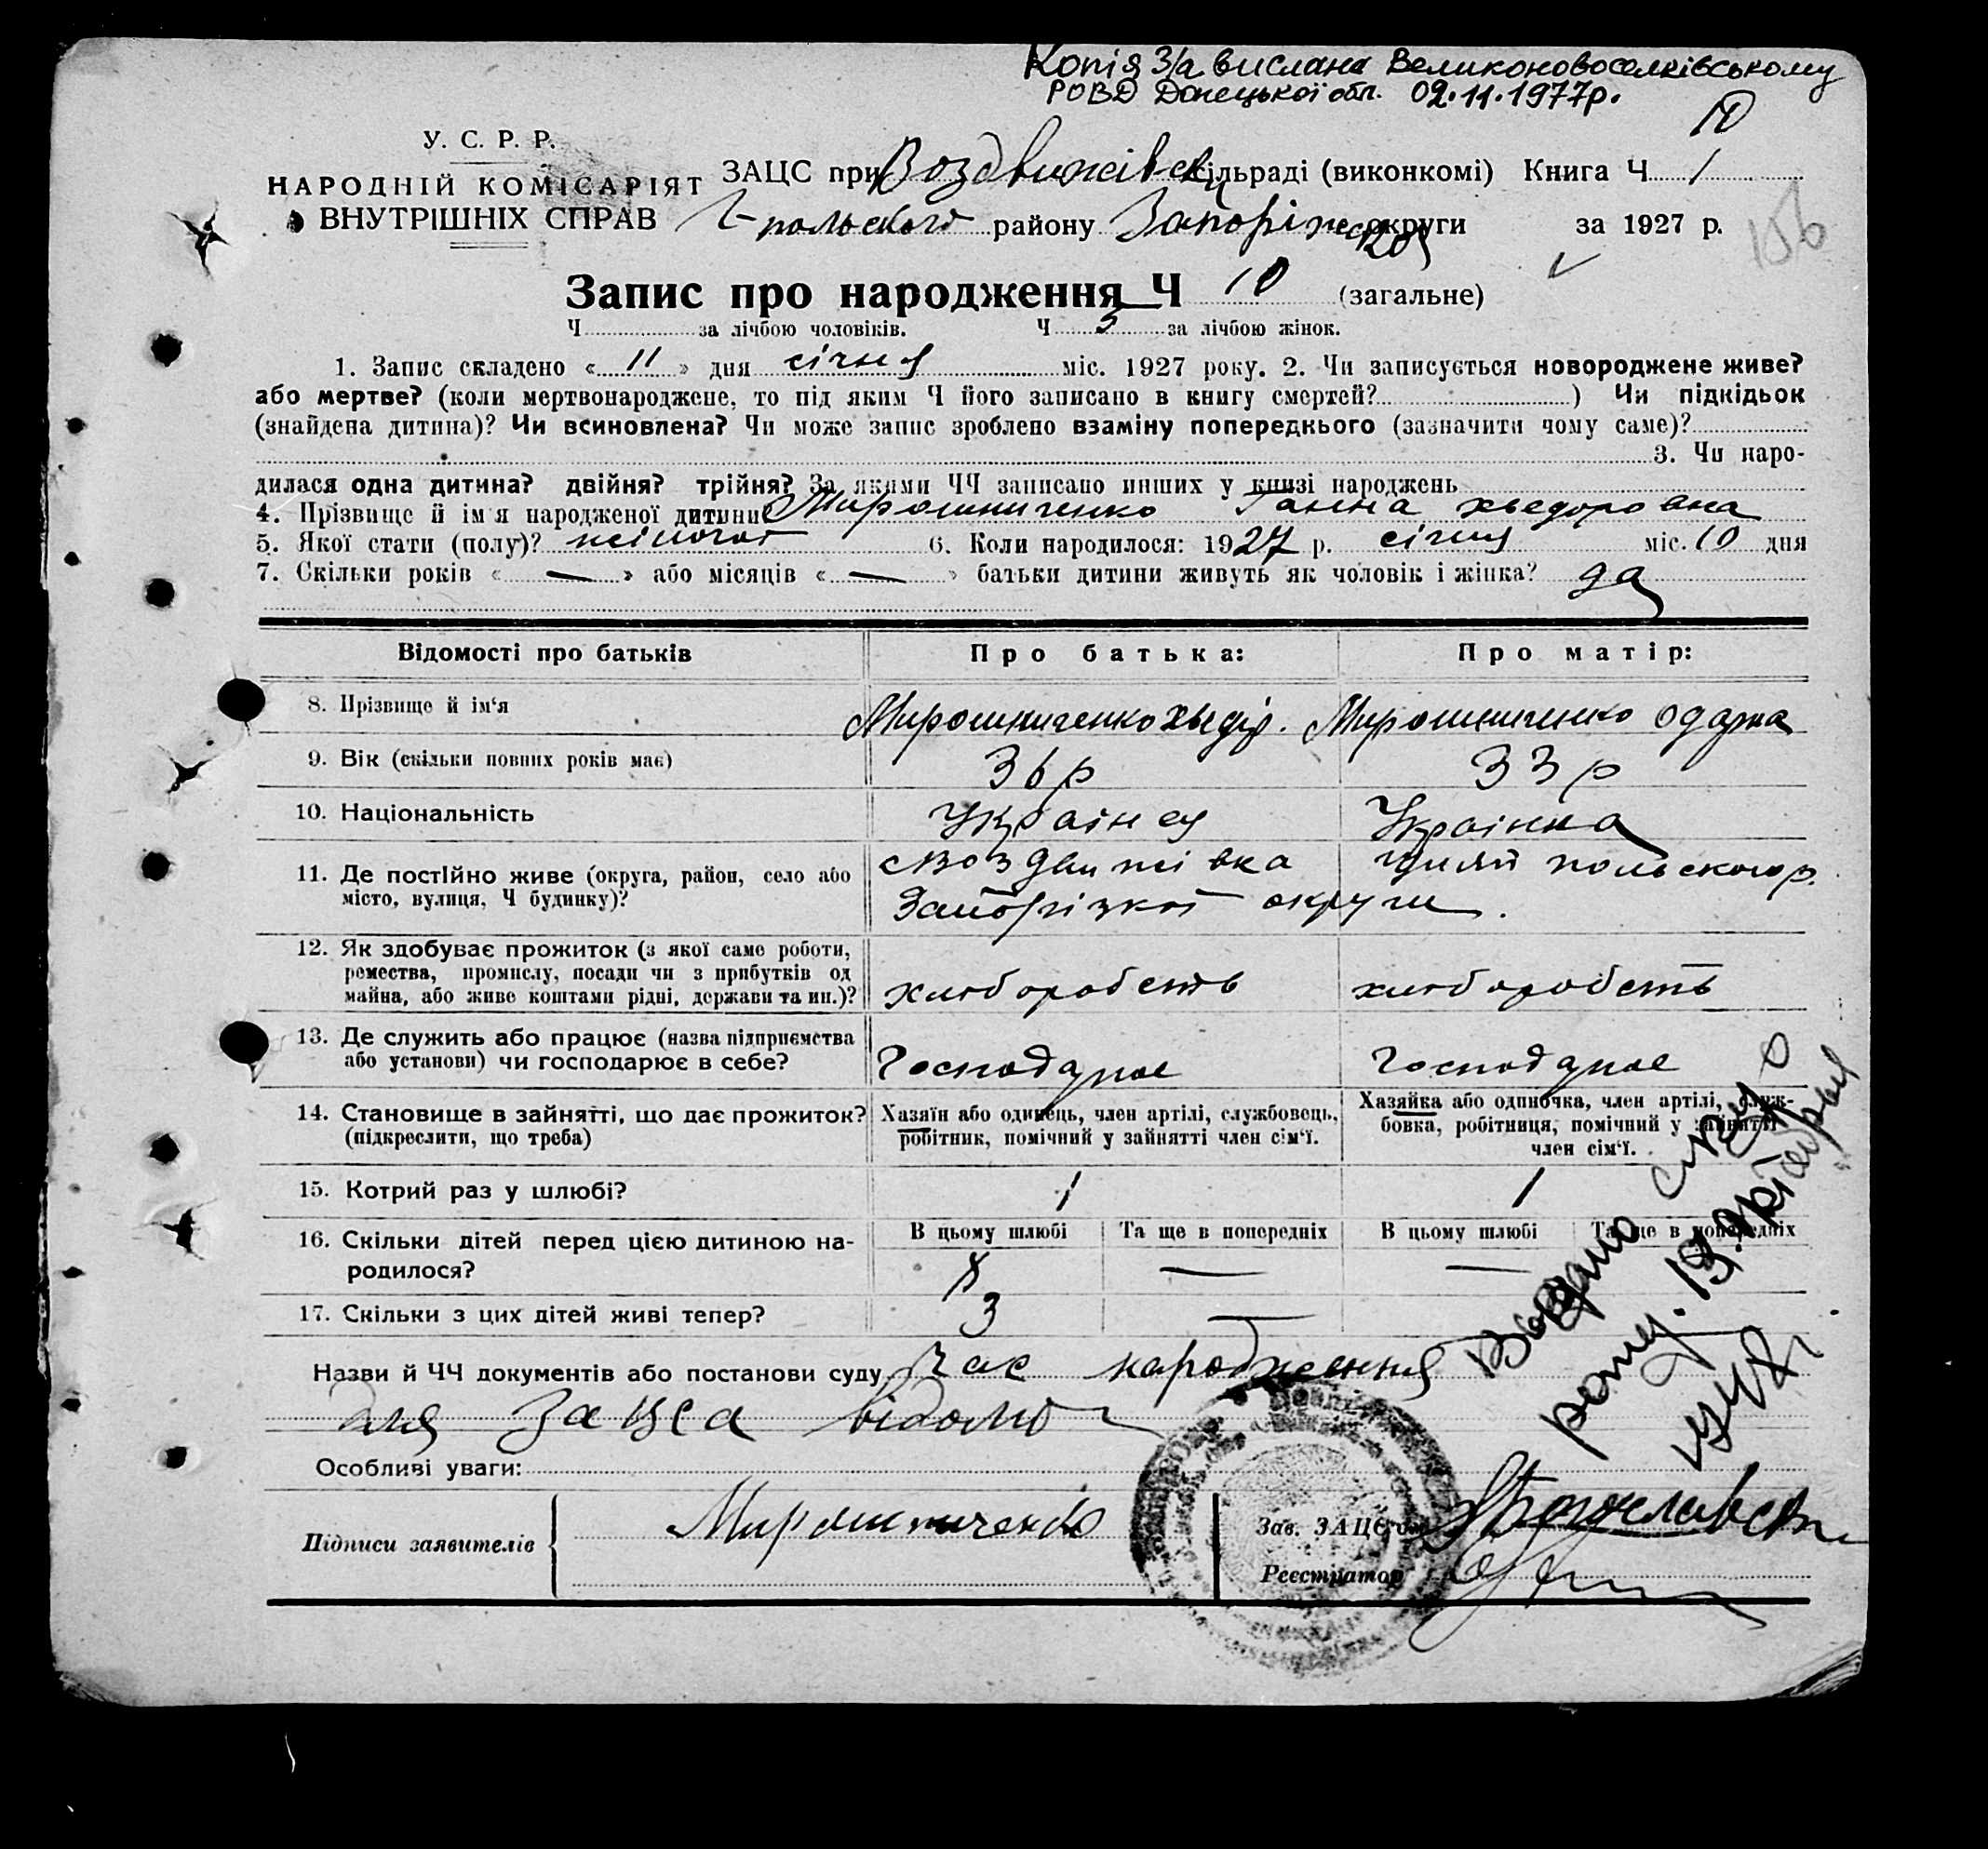 Копія З/а вислана Великоновоселківському
РОВД Донецької обл. 02.11.1977р.
10
У. С. Р. Р.
НАРОДНІЙ КОМІСАРІЯТ
ВНУТРІШНІХ СПРАВ
ЗАЦС при Воздвижівск сільраді (виконкомі) Книга Ч 1
Г-польського району Запоріжської округи за 1927 р.
156
Запис про народження Ч 10 (загальне)
Ч за лічбою чоловіків. Ч 5 за лічбою жінок.
1. Запис складено « 11 » дня січня міс. 1927 року. 2. Чи записується новороджене живе?
або мертве? (коли мертвонароджене, то під яким Ч його записано в книгу смертей? ) Чи підкідьок
(знайдена дитина)? Чи всиновлена? Чи може запис зроблено взаміну попереднього (зазначити чому саме)?
3. Чи наро-
дилася одна дитина? двійня? трійня? За якими ЧЧ записано инших у книзі народжень
4. Прізвище й ім'я народженої дитини Мирошниченко Ганна Хведоровна
5. Якої стати (полу)? жіночої 6. Коли народилося: 1927 р. січня міс. 10 дня
7. Скільки років « — » або місяців « — » батьки дитини живуть як чоловік і жінка? да
Відомості про батьків Про батька: Про матір:
8. Прізвище й ім'я Мирошниченко Хведір. Мирошниченко Одарка
9. Вік (скільки повних років має) 36 р 33 р
10. Національність Українец Українка
11. Де постійно живе (округа, район, село або місто, вулиця, Ч будинку)? с Воздвижівка Гуляй польского р.
Запорізкої округи.
12. Як здобуває прожиток (з якої саме роботи,
ремества, промислу, посади чи з прибутків од
майна, або живе коштами рідні, держави та ин.)? хліборобств хліборобств
13. Де служить або працює (назва підприємства
або установи) чи господарює в себе? Господарює Господарює
14. Становище в зайнятті, що дає прожиток?
(підкреслити, що треба)
Хазяїн або одинець, член артілі, службовець,
робітник, помічний у зайнятті член сім'ї.
Хазяйка або одиночка, член артілі, служ-
бовка, робітниця, помічний у зайнятті
член сім'ї.
15. Котрий раз у шлюбі? 1 1
16. Скільки дітей перед цією дитиною на-
родилося?
В цьому шлюбі Та ще в попередніх В цьому шлюбі Та ще в попередніх
— —
17. Скільки з цих дітей живі тепер? 3 —
Назви й ЧЧ документів або постанови суду Час народження
для Загса відомо
Особливі уваги:
Підписи заявителів Мирошниченко
Зав. ЗАЦС'ом
Реєстратор
Видано